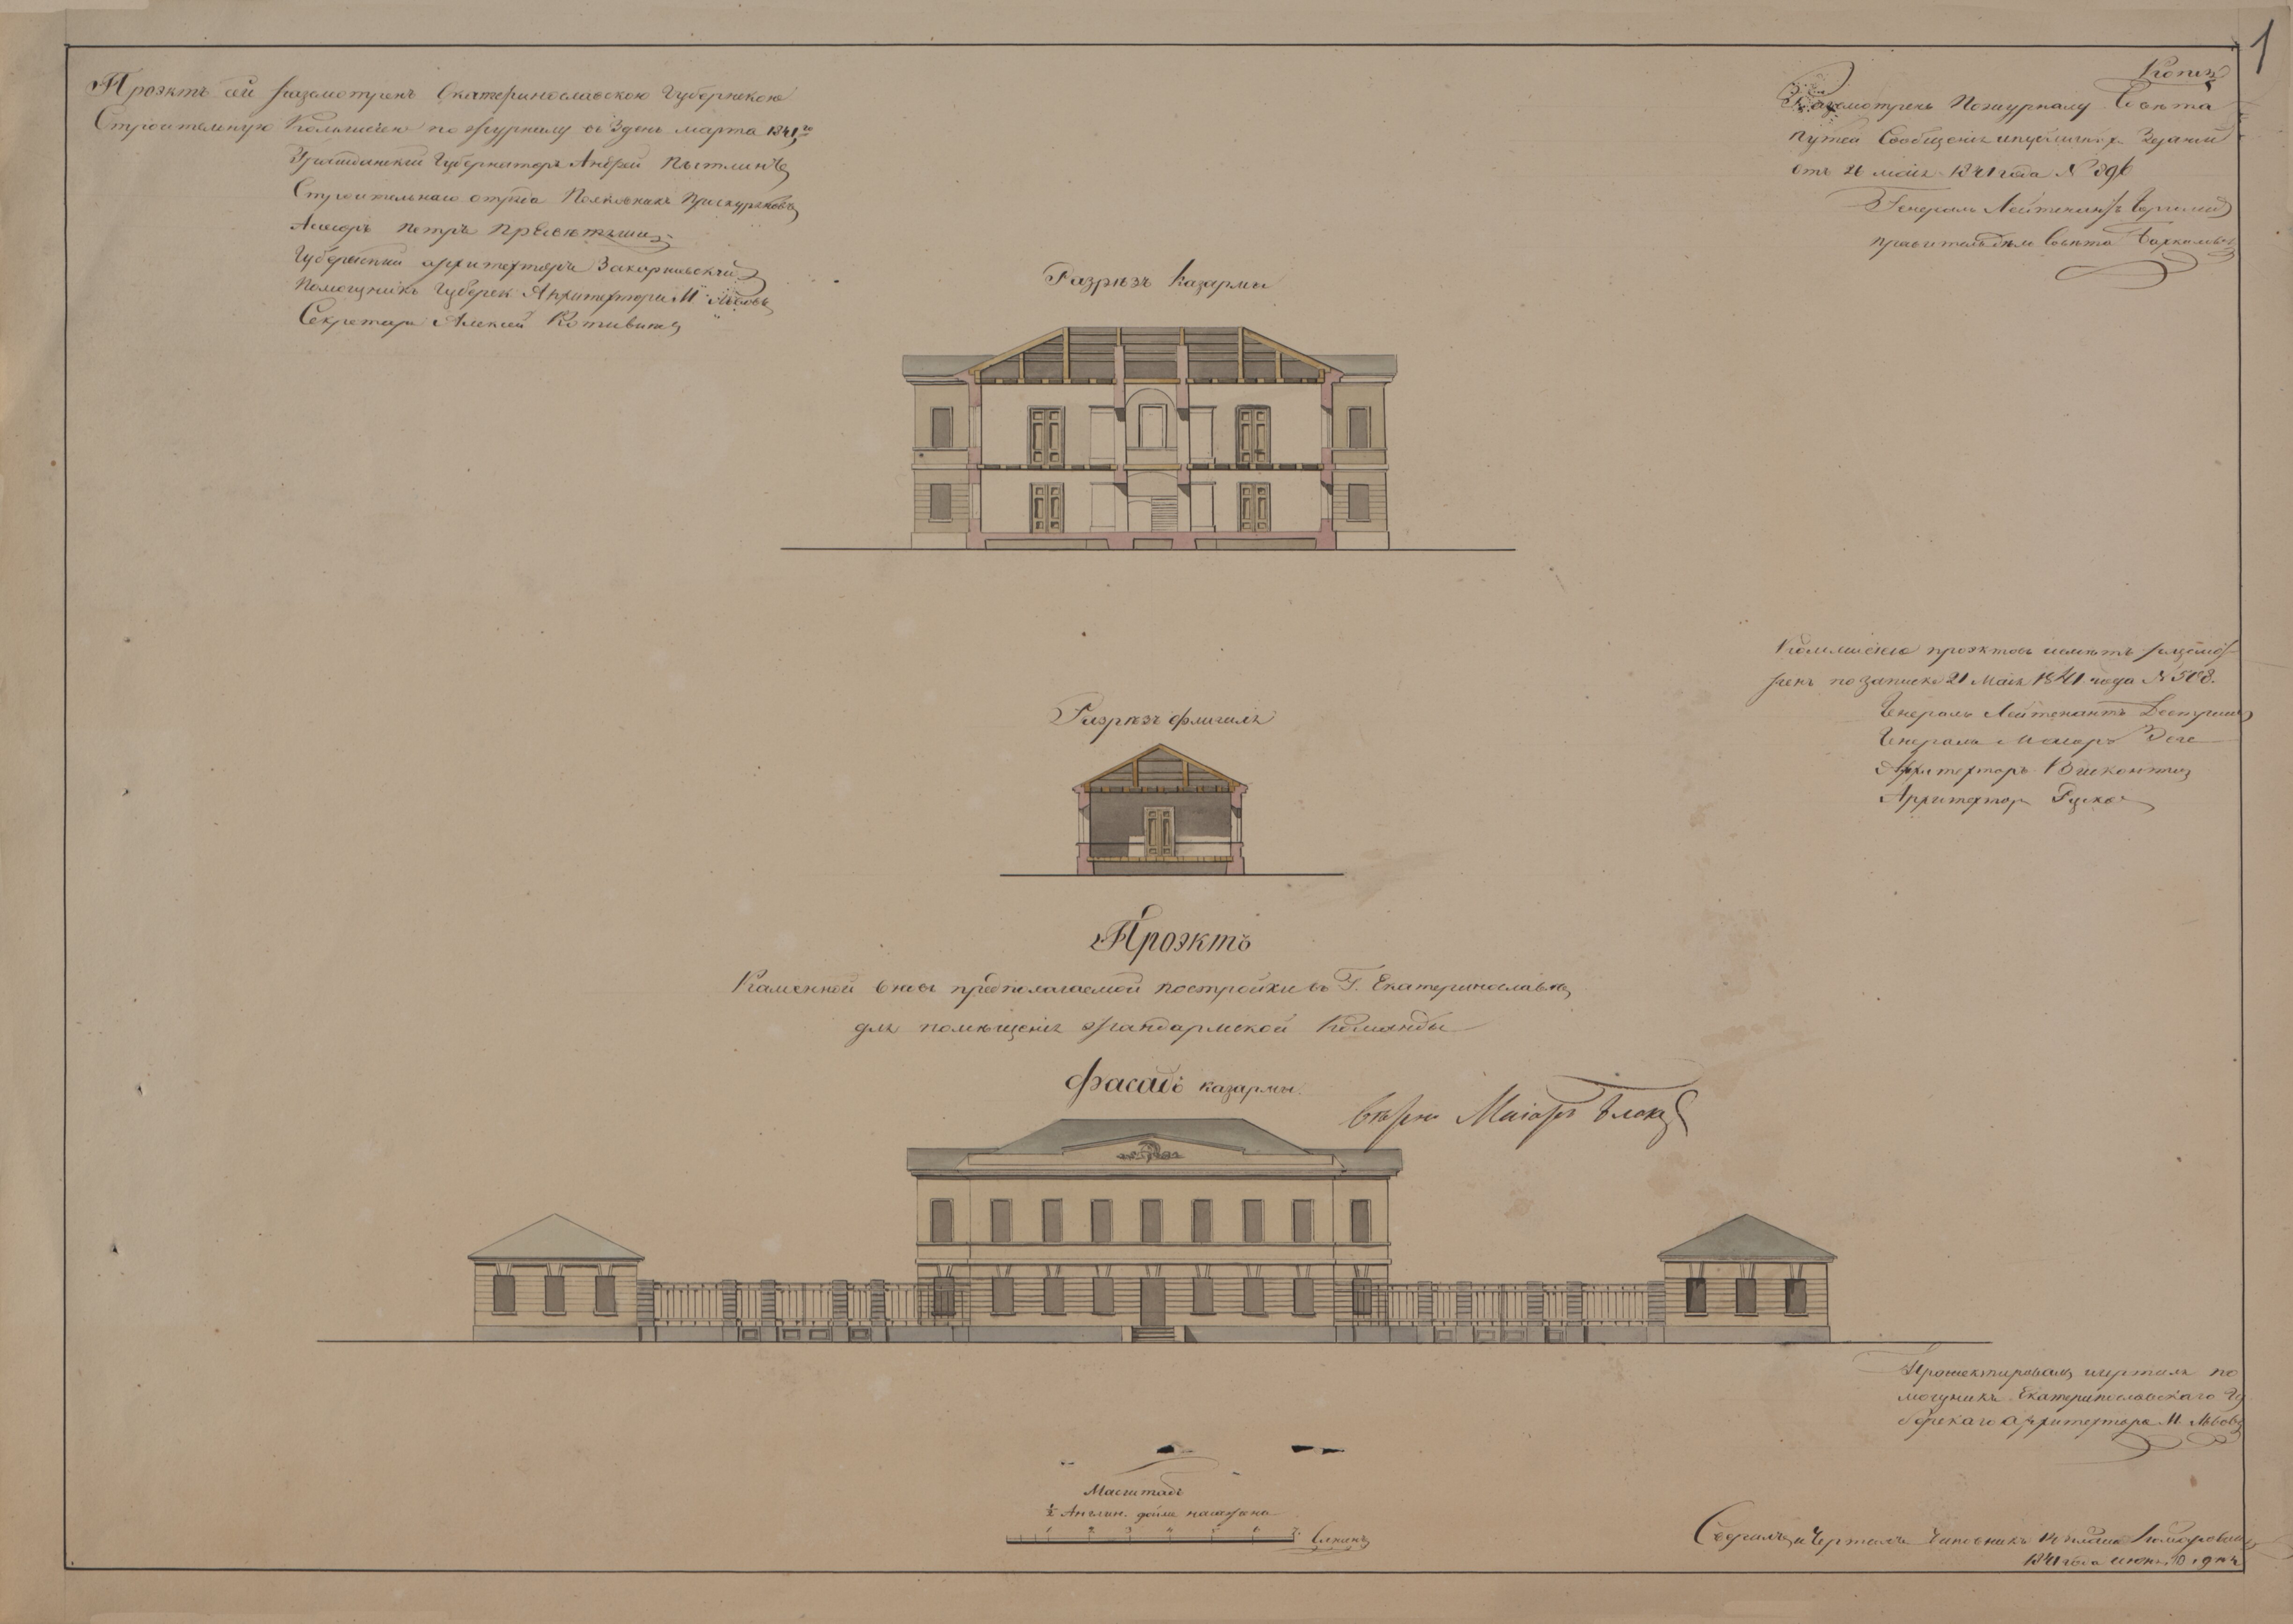 1
Проэктъ сей разсмотренъ Екатеринославскою Губернскою
Строительную Коммисiею по журналу въ 3 день марта 1841 го
Гражданскiй Губернаторъ Андрей
Строительнаго отряда Полковникъ
Асесоръ Петръ
Губернскiй архитекторъ
Помощникъ Губерск. Архитектора М. Львовъ
Секретарь Алексей
Копiя
Разсмотренъ По журналу Совѣта
Путей Сообщенiя и публичныхъ Зданiй
отъ 26 маiя 1841 года N 396
Генералъ Лейтенантъ
правитель дѣлъ Совѣта
Разрѣзъ Казармы
Коммисiею проэктовъ и смѣтъ разсмо-
ренъ по записке 21 Маiя 1841 года N 508.
Генералъ Лейтенантъ Дестремъ
Генералъ Маiоръ
Архитекторъ Висконти
Архитекторъ Руска
Разрѣзъ флигиля
Проэктъ
Каменной вновь предполагаемой постройки въ Г. Екатеринославлѣ
для помѣщенiя Жандармской Команды
Фасадъ казармы.
Вѣрно Маiоръ
Проэктировалъ и чертилъ по
мощникъ Екатеринославскаго Гу
бернскаго архитектора М. Львовъ
Масштабъ
½ Англин. дюйма на сажень
1 2 3 4 5 6 7 Сажень
и Чертилъ Чиновникъ 14 класса
1841 года июня 10 дня